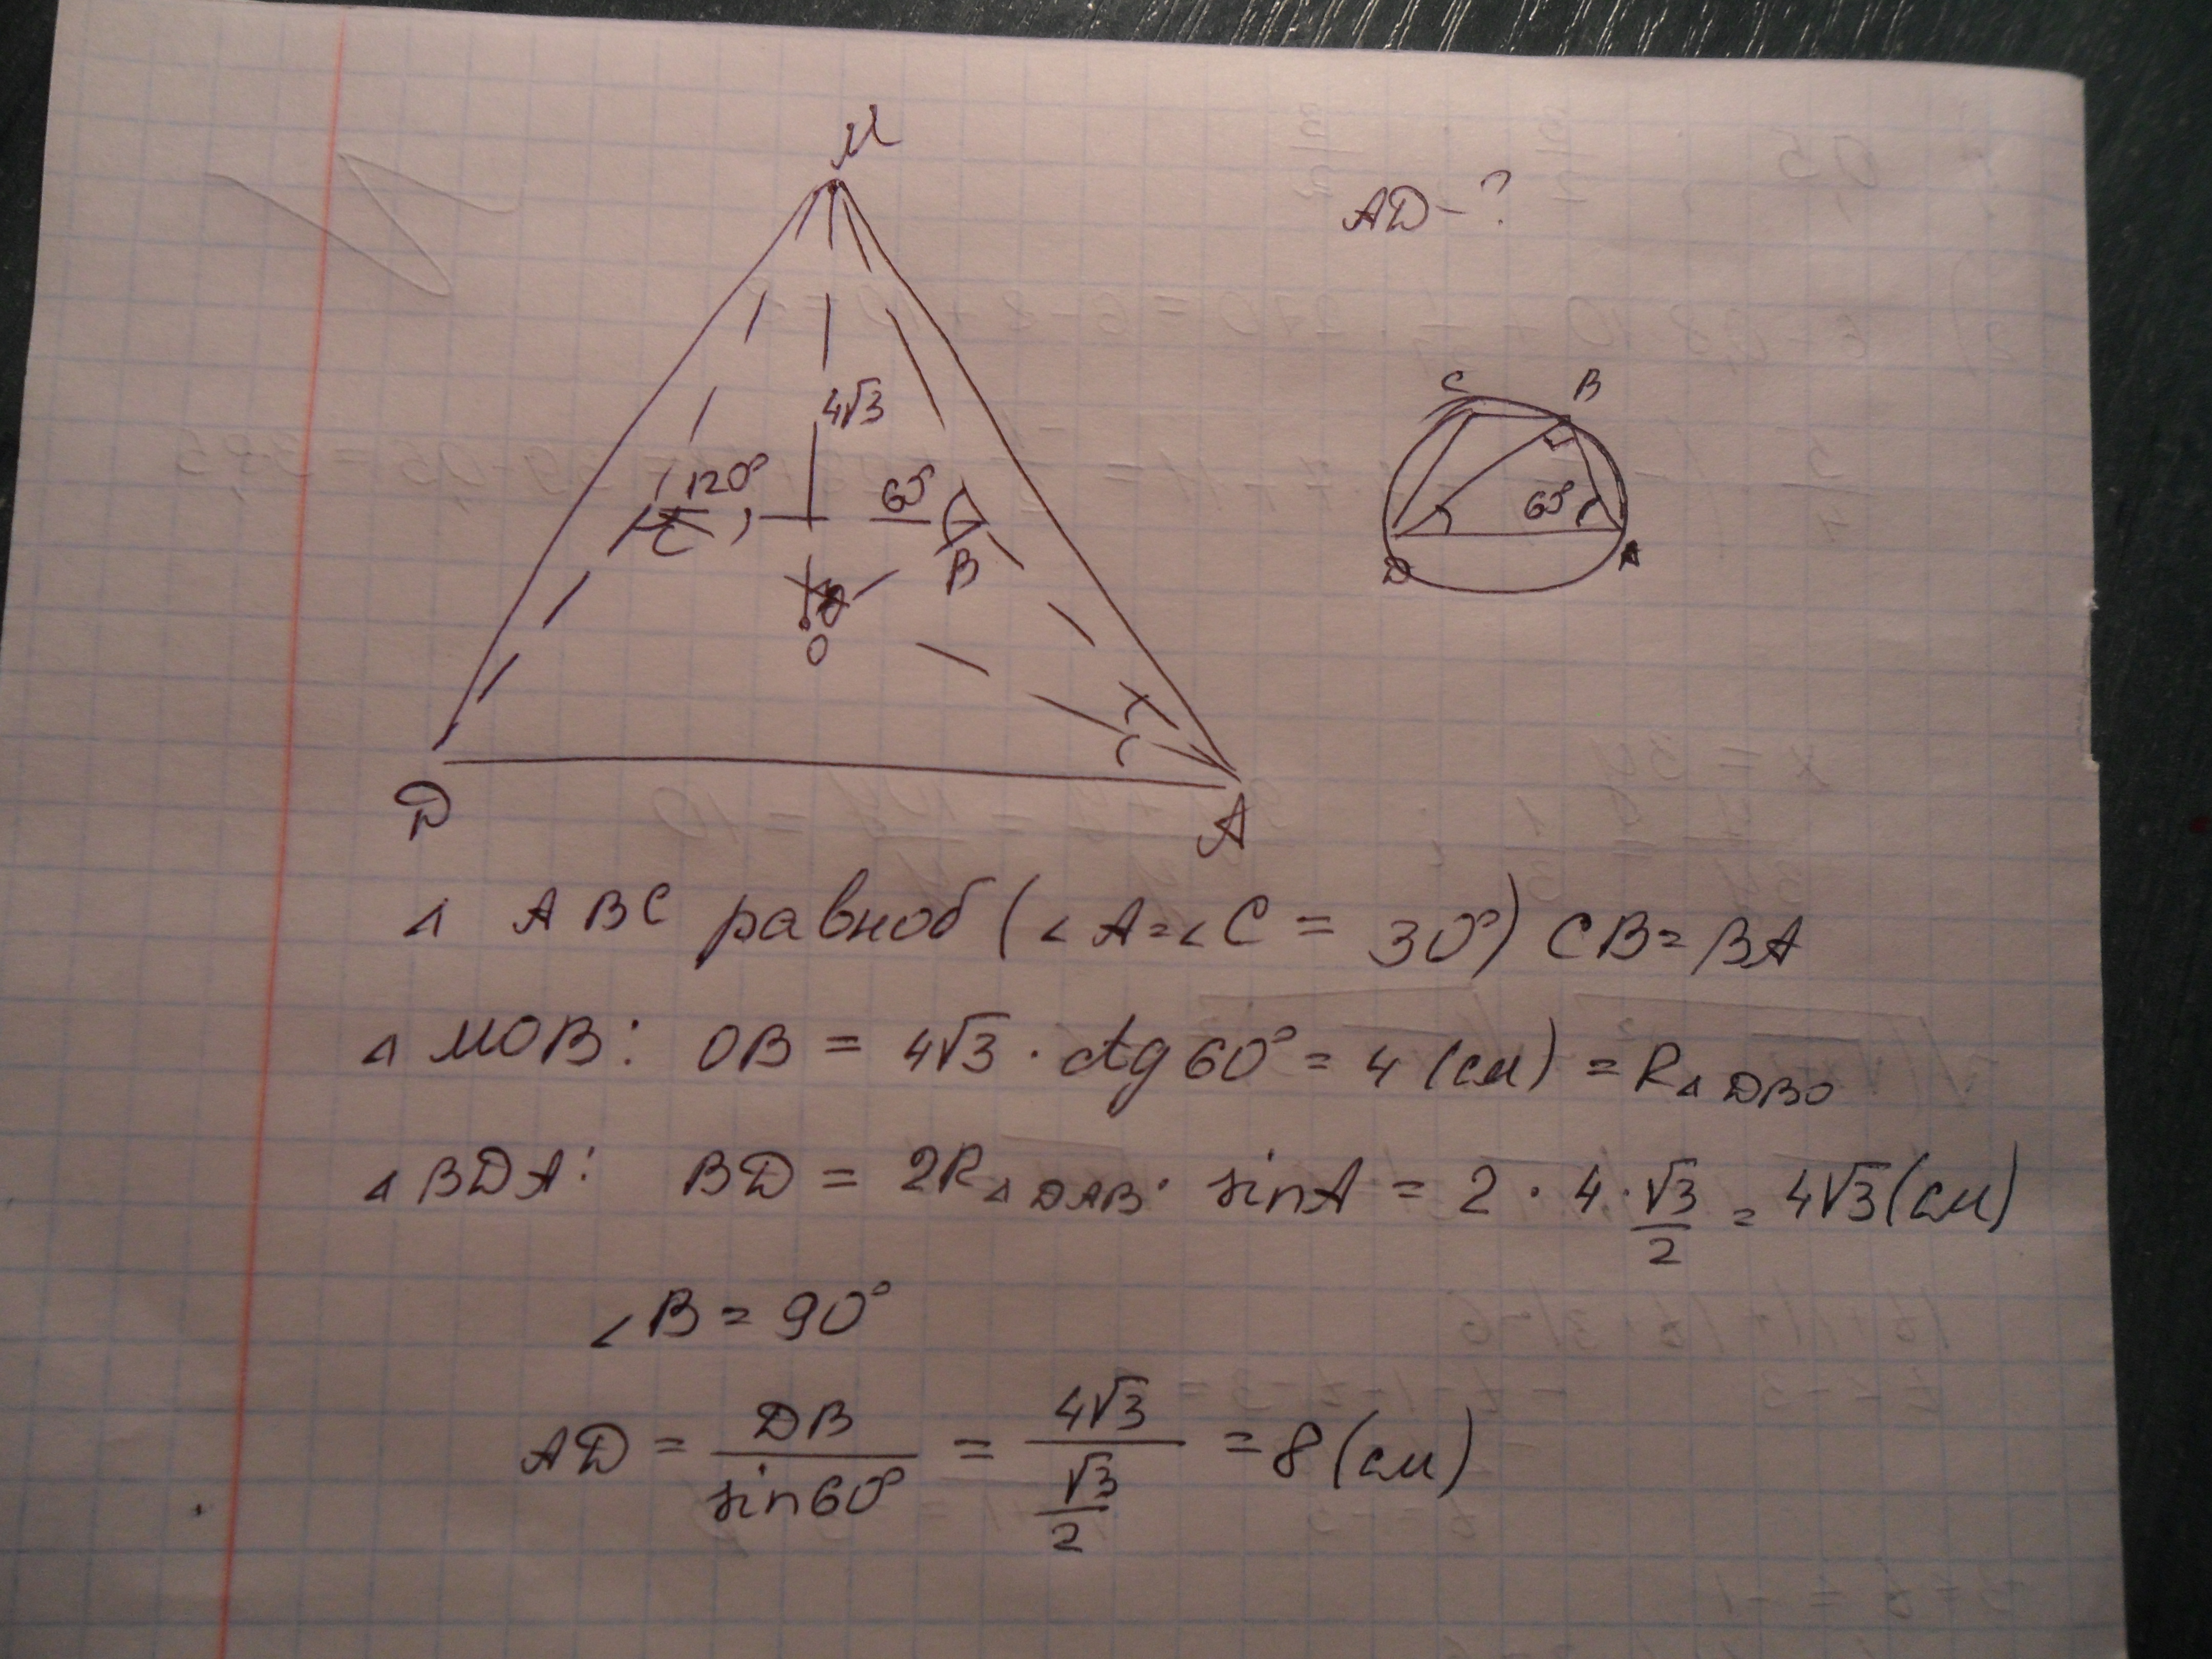 М
AD - ?
4√3
120°
60°
C
B
O
C B
60°
D A
D A
△ ABC равноб (∠A=∠C = 30°) CB=BA
△ MOB: OB = 4√3 · ctg 60° = 4 (см) = R△DBO
△ BDA: BD = 2R△DAB · sinA = 2 · 4 · √3/2 = 4√3 (см)
∠B = 90°
AD = DB/sin60° = 4√3/(√3/2) = 8 (см)